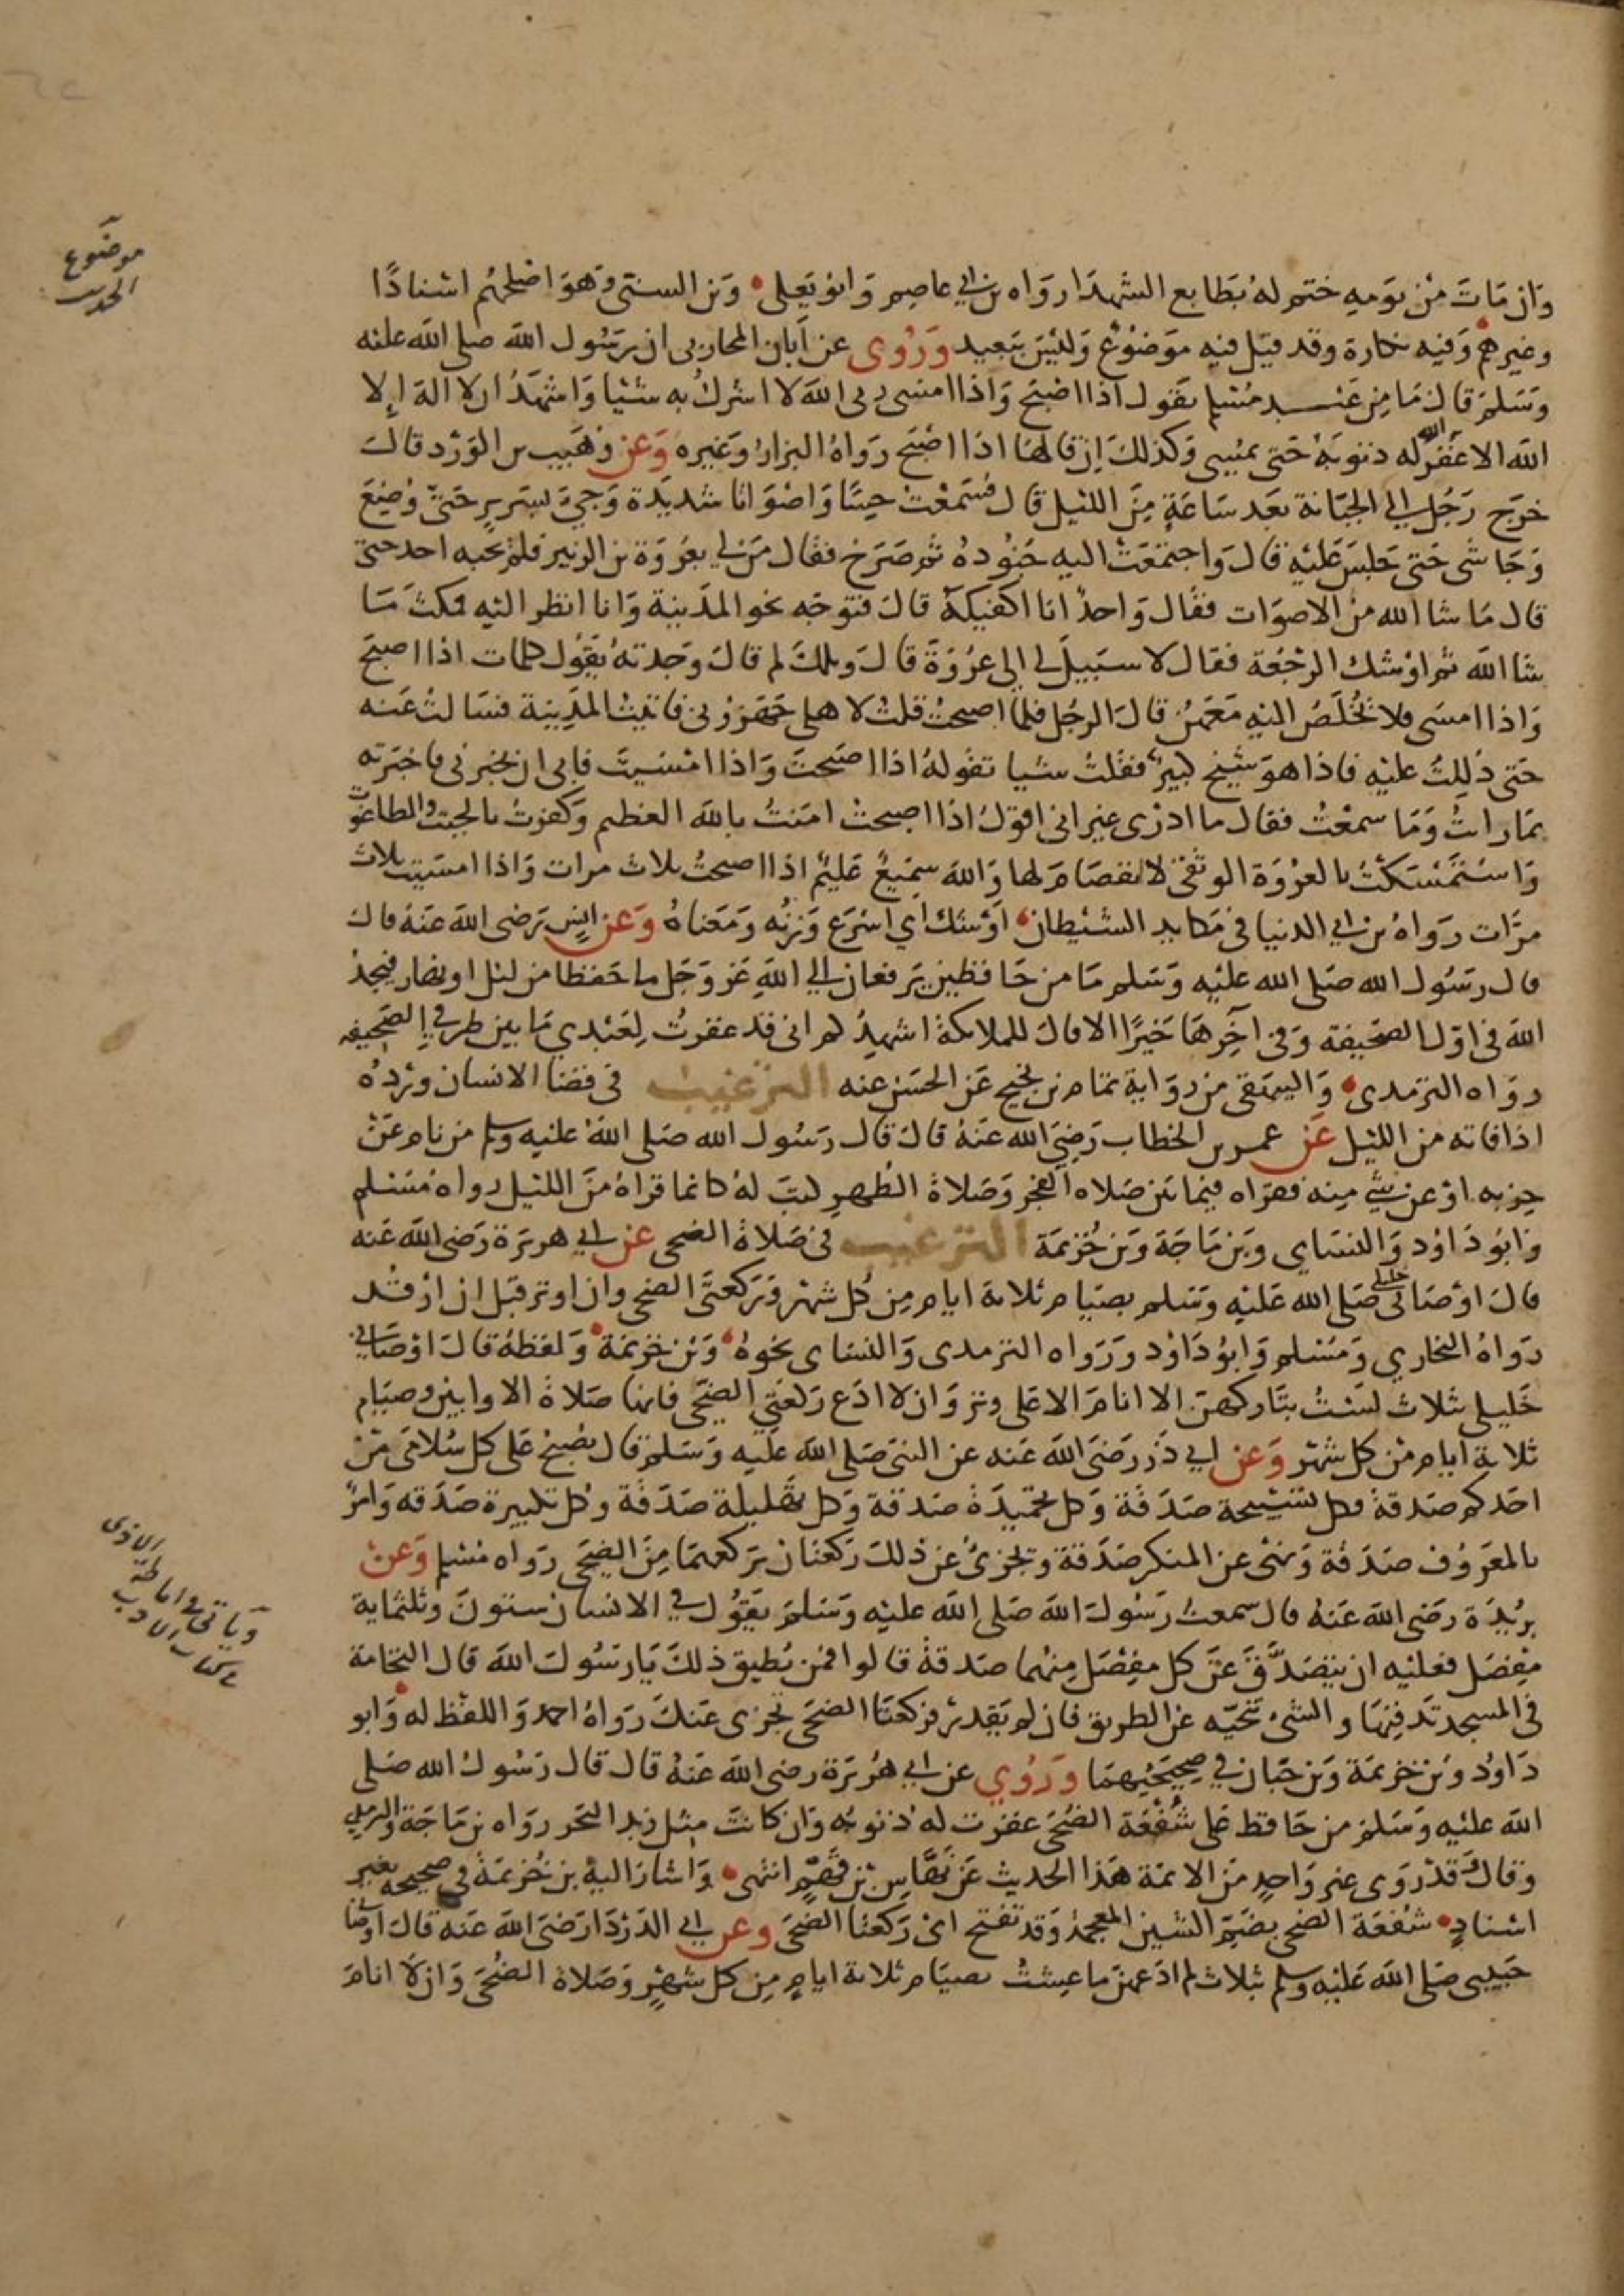 موضوع
الحديث
وان مات من يومه ختم له بطابع الشهدا رواه بن ابي عاصم وابو يعلى وبن السني وهو اصلحهم اسنادًا
وغيرهم وفيه نكارة وقد قيل فيه موضوع وليس ببعيد وروى عن أبان المحاربي ان رسول الله صلى الله عليه
وسلم قال ما من عبد مسلم يقول اذا اصبح واذا امسى ربى الله لا اشرك به شيا واشهد ان لا اله إلا
الله الا غفر الله له ذنوبه حتى يمسى وكذلك إن قالها اذا اصبح رواه البزار وغيره وعن وهيب بن الورد قال
خرج رجل الي الجبانة بعد ساعة من الليل قال فسمعت حسًا واصواتا شديدة وجيء بسرير حتى وضع
وجا شى حتى جلس عليه قال واجتمعت اليه جنوده ثم صرخ فقال من لي بعروة بن الزبير فلم يجبه احد حتى
قال ما شا الله من الاصوات فقال واحدٌ انا اكفيكه قال فتوجه نحو المدينة وانا انظر اليه فمكث ما
شا الله ثم اوشك الرجعة فقال لا سبيل لى الى عروة قال ويلك لم قال وجدته يقول كلمات اذا اصبح
واذا امسى فلا نخلص اليه معهن قال الرجل فلما اصبحت قلت لاهلى جهزونى فاتيت المدينة فسالت عنه
حتى دللت عليه فاذا هو شيخ كبير فقلت شيا تقوله اذا اصبحت واذا امسيت فابى ان يخبرنى فاخبرته
بما رايت وما سمعت فقال ما ادرى غير انى اقول اذا اصبحت امنت بالله العظيم وكفرت بالجبت والطاغوت
واستمسكت بالعروة الوثقى لا انفصام لها والله سميع عليم اذا اصبحت ثلاث مرات واذا امسيت ثلاث
مرّات رواه بن ابي الدنيا فى مكايد الشيطان اوشك أي اسرع وزنه ومعناه وعن انس رضى الله عنه قال
قال رسول الله صلى الله عليه وسلم ما من حافظين يرفعان الي الله عز وجل ما حفظا من ليل او نهار فيجد
الله فى اول الصحيفة وفى آخرها خيرًا الا قال للملائكة اشهدكم انى قد غفرت لعبدي ما بين طرفي الصحيفة
رواه الترمدى والبيهقى من رواية تمام بن نجيح عن الحسن عنه الترغيب فى قضا الانسان ورده
اذا فاته من الليل عن عمر بن الخطاب رضي الله عنه قال قال رسول الله صلى الله عليه وسلم من نام عن
حزبه او عن شي منه فقراه فيما بين صلاه الفجر وصلاة الظهر كتب له كانما قراه من الليل رواه مسلم
وابو داود والنساى وبن ماجة وبن خزيمة الترغيب فى صلاة الضحى عن ابي هريرة رضى الله عنه
قال اوصانى خليلى صلى الله عليه وسلم بصيام ثلاثة ايام من كل شهر وركعتى الضحى وان اوتر قبل ان ارقد
رواه البخاري ومسلم وابو داود ورواه الترمدى والنساى نحوه وبن خزيمة ولفظه قال اوصانى
خليلى بثلاث لست بتاركهن الا انام الا على وتر وان لا ادع ركعتي الضحى فانها صلاة الاوابين وصيام
ثلاثة ايام من كل شهر وعن ابي ذر رضى الله عنه عن النبى صلى الله عليه وسلم قال يصبح على كل سلامى من
احدكم صدقة فكل تسبيحة صدقة وكل تحميدة صدقة وكل تهليلة صدقة وكل تكبيرة صدقة وامر
بالمعروف صدقة ونهى عن المنكر صدقة وتجزئ عن ذلك ركعتان يركعهما من الضحى رواه مسلم وعن
بريدة رضى الله عنه قال سمعت رسول الله صلى الله عليه وسلم يقول في الانسان ستون وثلثماية
مفصل فعليه ان يتصدق عن كل مفصل منهما صدقة قالوا فمن يطيق ذلك يا رسول الله قال النخامة
فى المسجد تدفنها والشئ تنحيه عن الطريق فان لم يقدر فركعتا الضحى تجزى عنك رواه احمد واللفظ له وابو
داود وبن خزيمة وبن حبان في صحيحيهما وروي عن ابي هريرة رضى الله عنه قال قال رسول الله صلى
الله عليه وسلم من حافظ على شفعة الضحى غفرت له ذنوبه وان كانت مثل زبد البحر رواه بن ماجة والترمدي
وقال قد روى غير واحد من الائمة هذا الحديث عن نهاس بن قهم انتهى واشار اليه بن خزيمة في صحيحه بغير
اسناد شفعة الضحى بضم الشين المعجمة وقد تفتح اى ركعتا الضحى وعن ابي الدردا رضى الله عنه قال اوصانى
حبيبى صلى الله عليه وسلم بثلاث لم ادعهن ما عشت بصيام ثلاثة ايام من كل شهر وصلاة الضحى وان لا انام